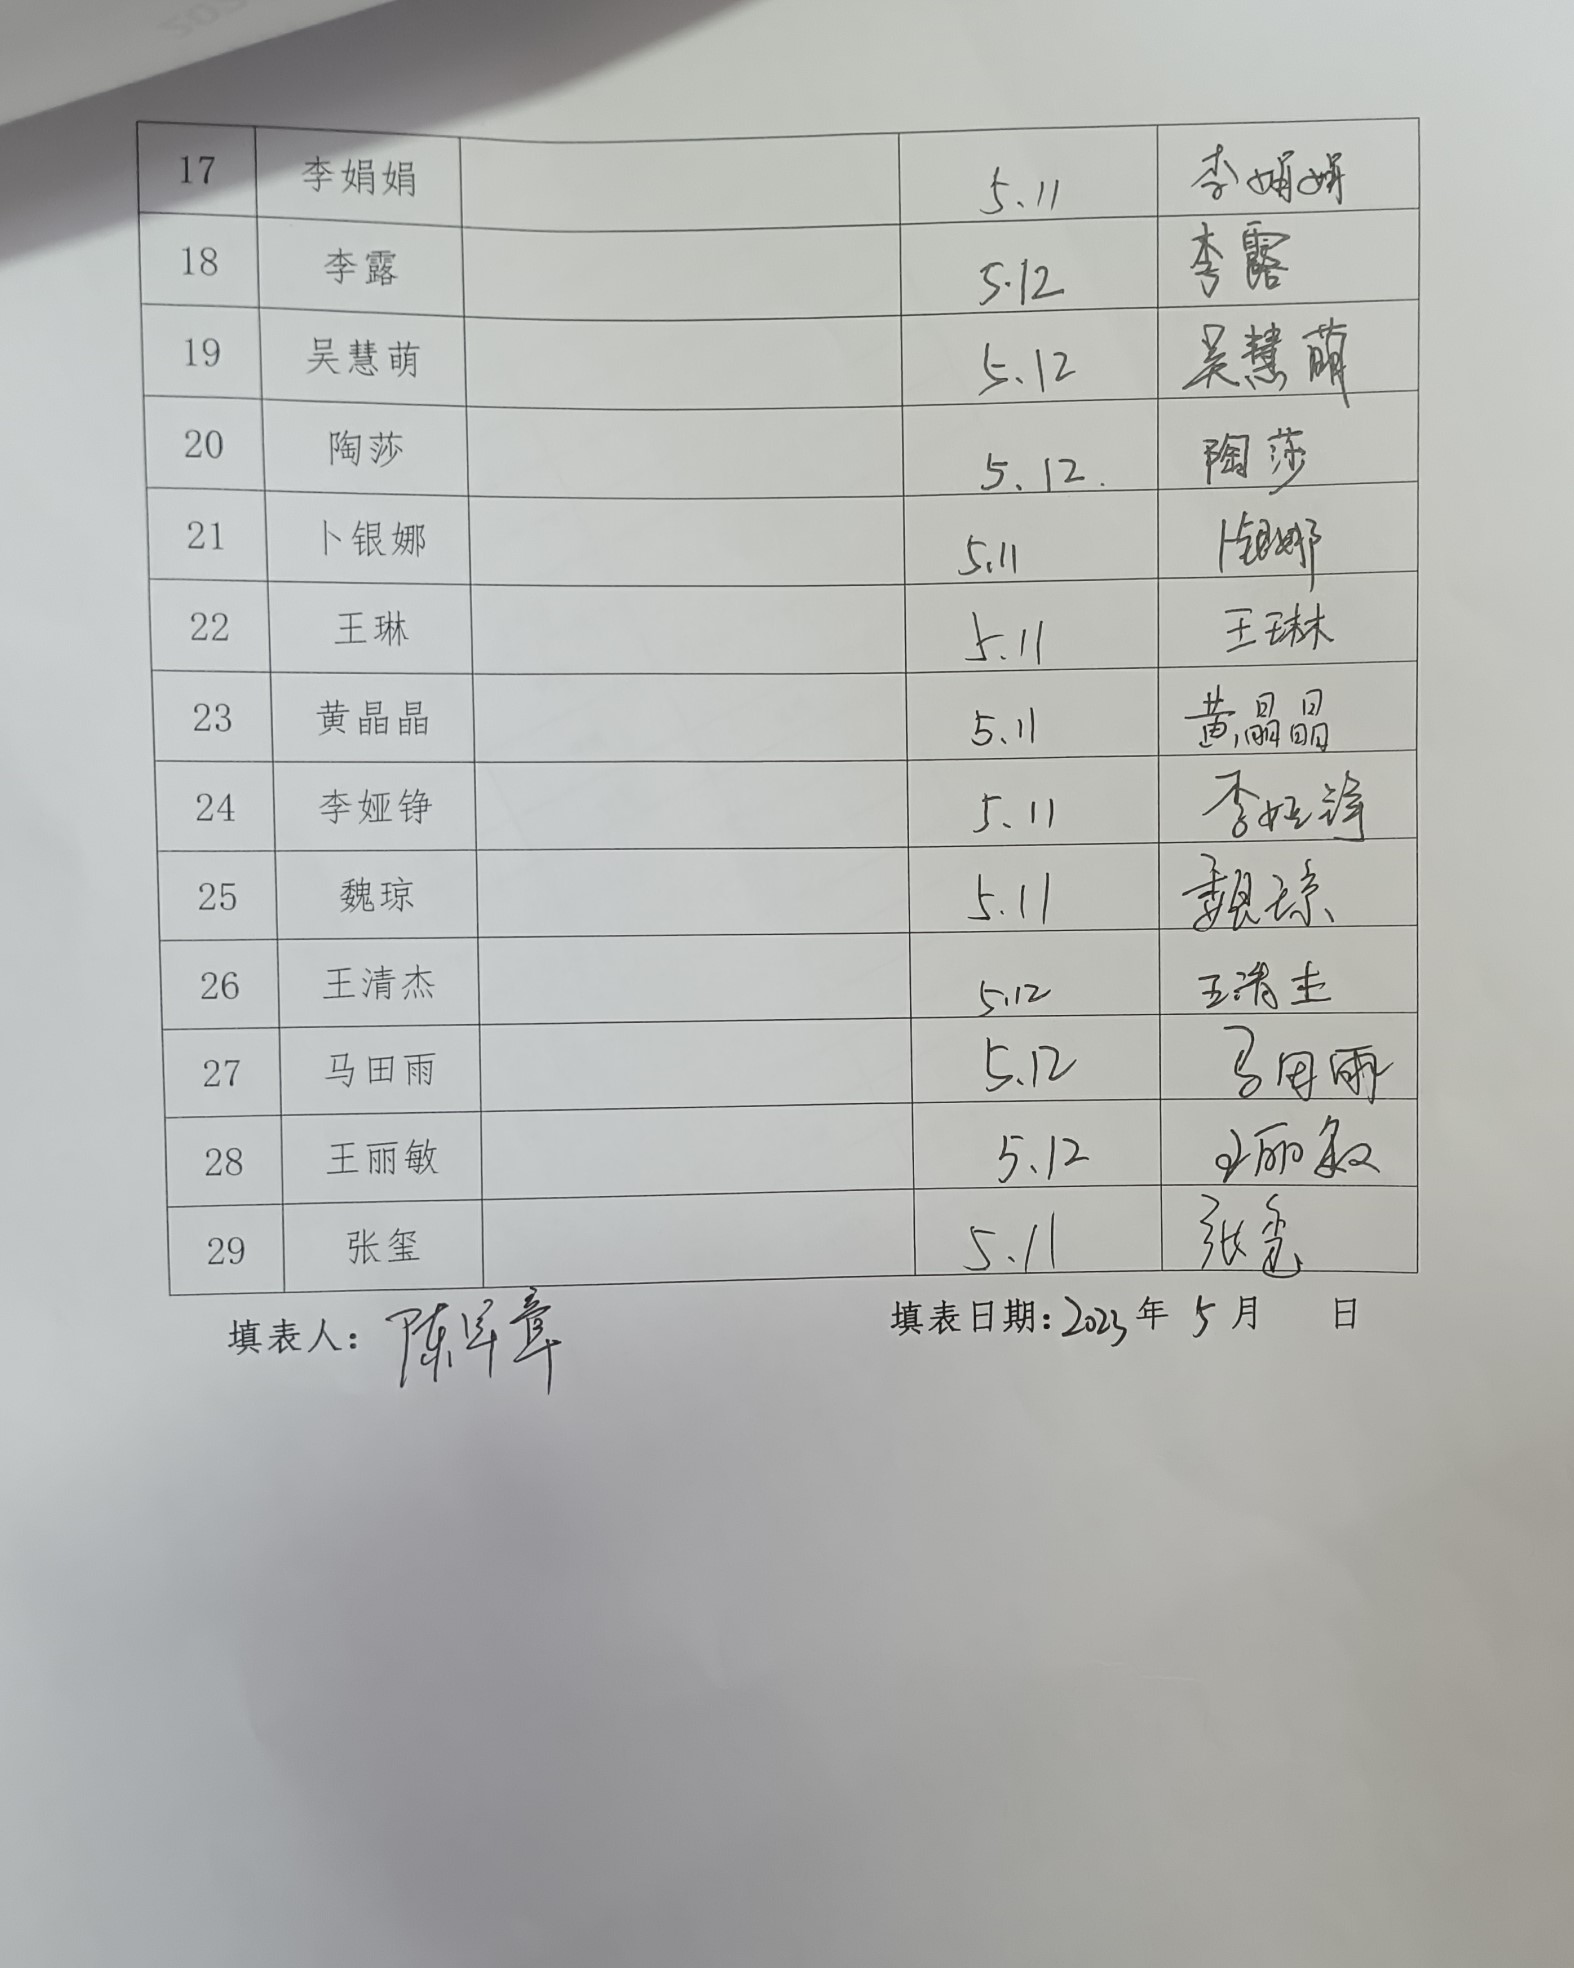 17 李娟娟 5.11 李娟娟
18 李露 5.12 李露
19 吴慧萌 5.12 吴慧萌
20 陶莎 5.12. 陶莎
21 卜银娜 5.11 卜银娜
22 王琳 5.11 王琳
23 黄晶晶 5.11 黄晶晶
24 李娅铮 5.11 李娅铮
25 魏琼 5.11 魏琼
26 王清杰 5.12 王清杰
27 马田雨 5.12 马田雨
28 王丽敏 5.12 王丽敏
29 张玺 5.11 张玺
填表人: 陈军章 填表日期: 2023 年 5 月 日